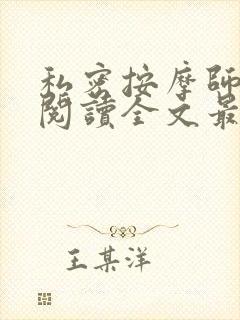 私密按摩師
閱讀全文最
王某洋